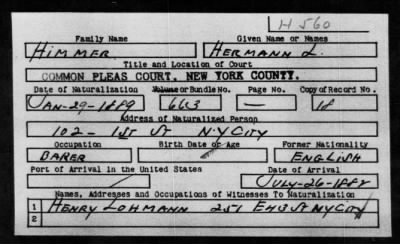 H 560
Family Name Given Name or Names
HIMMER HERMANN L.
Title and Location of Court
COMMON PLEAS COURT, NEW YORK COUNTY.
Date of Naturalization Volume or Bundle No. Page No. Copy of Record No.
JAN-29-1889 663 — 18
Address of Naturalized Person
102- 1ST ST NYCITY
Occupation Birth Date or Age Former Nationality
BARER ENGLISH
Port of Arrival in the United States Date of Arrival
JULY-26-1882
Names, Addresses and Occupations of Witnesses To Naturalization
1 HENRY LOHMANN 251 NYCITY
2